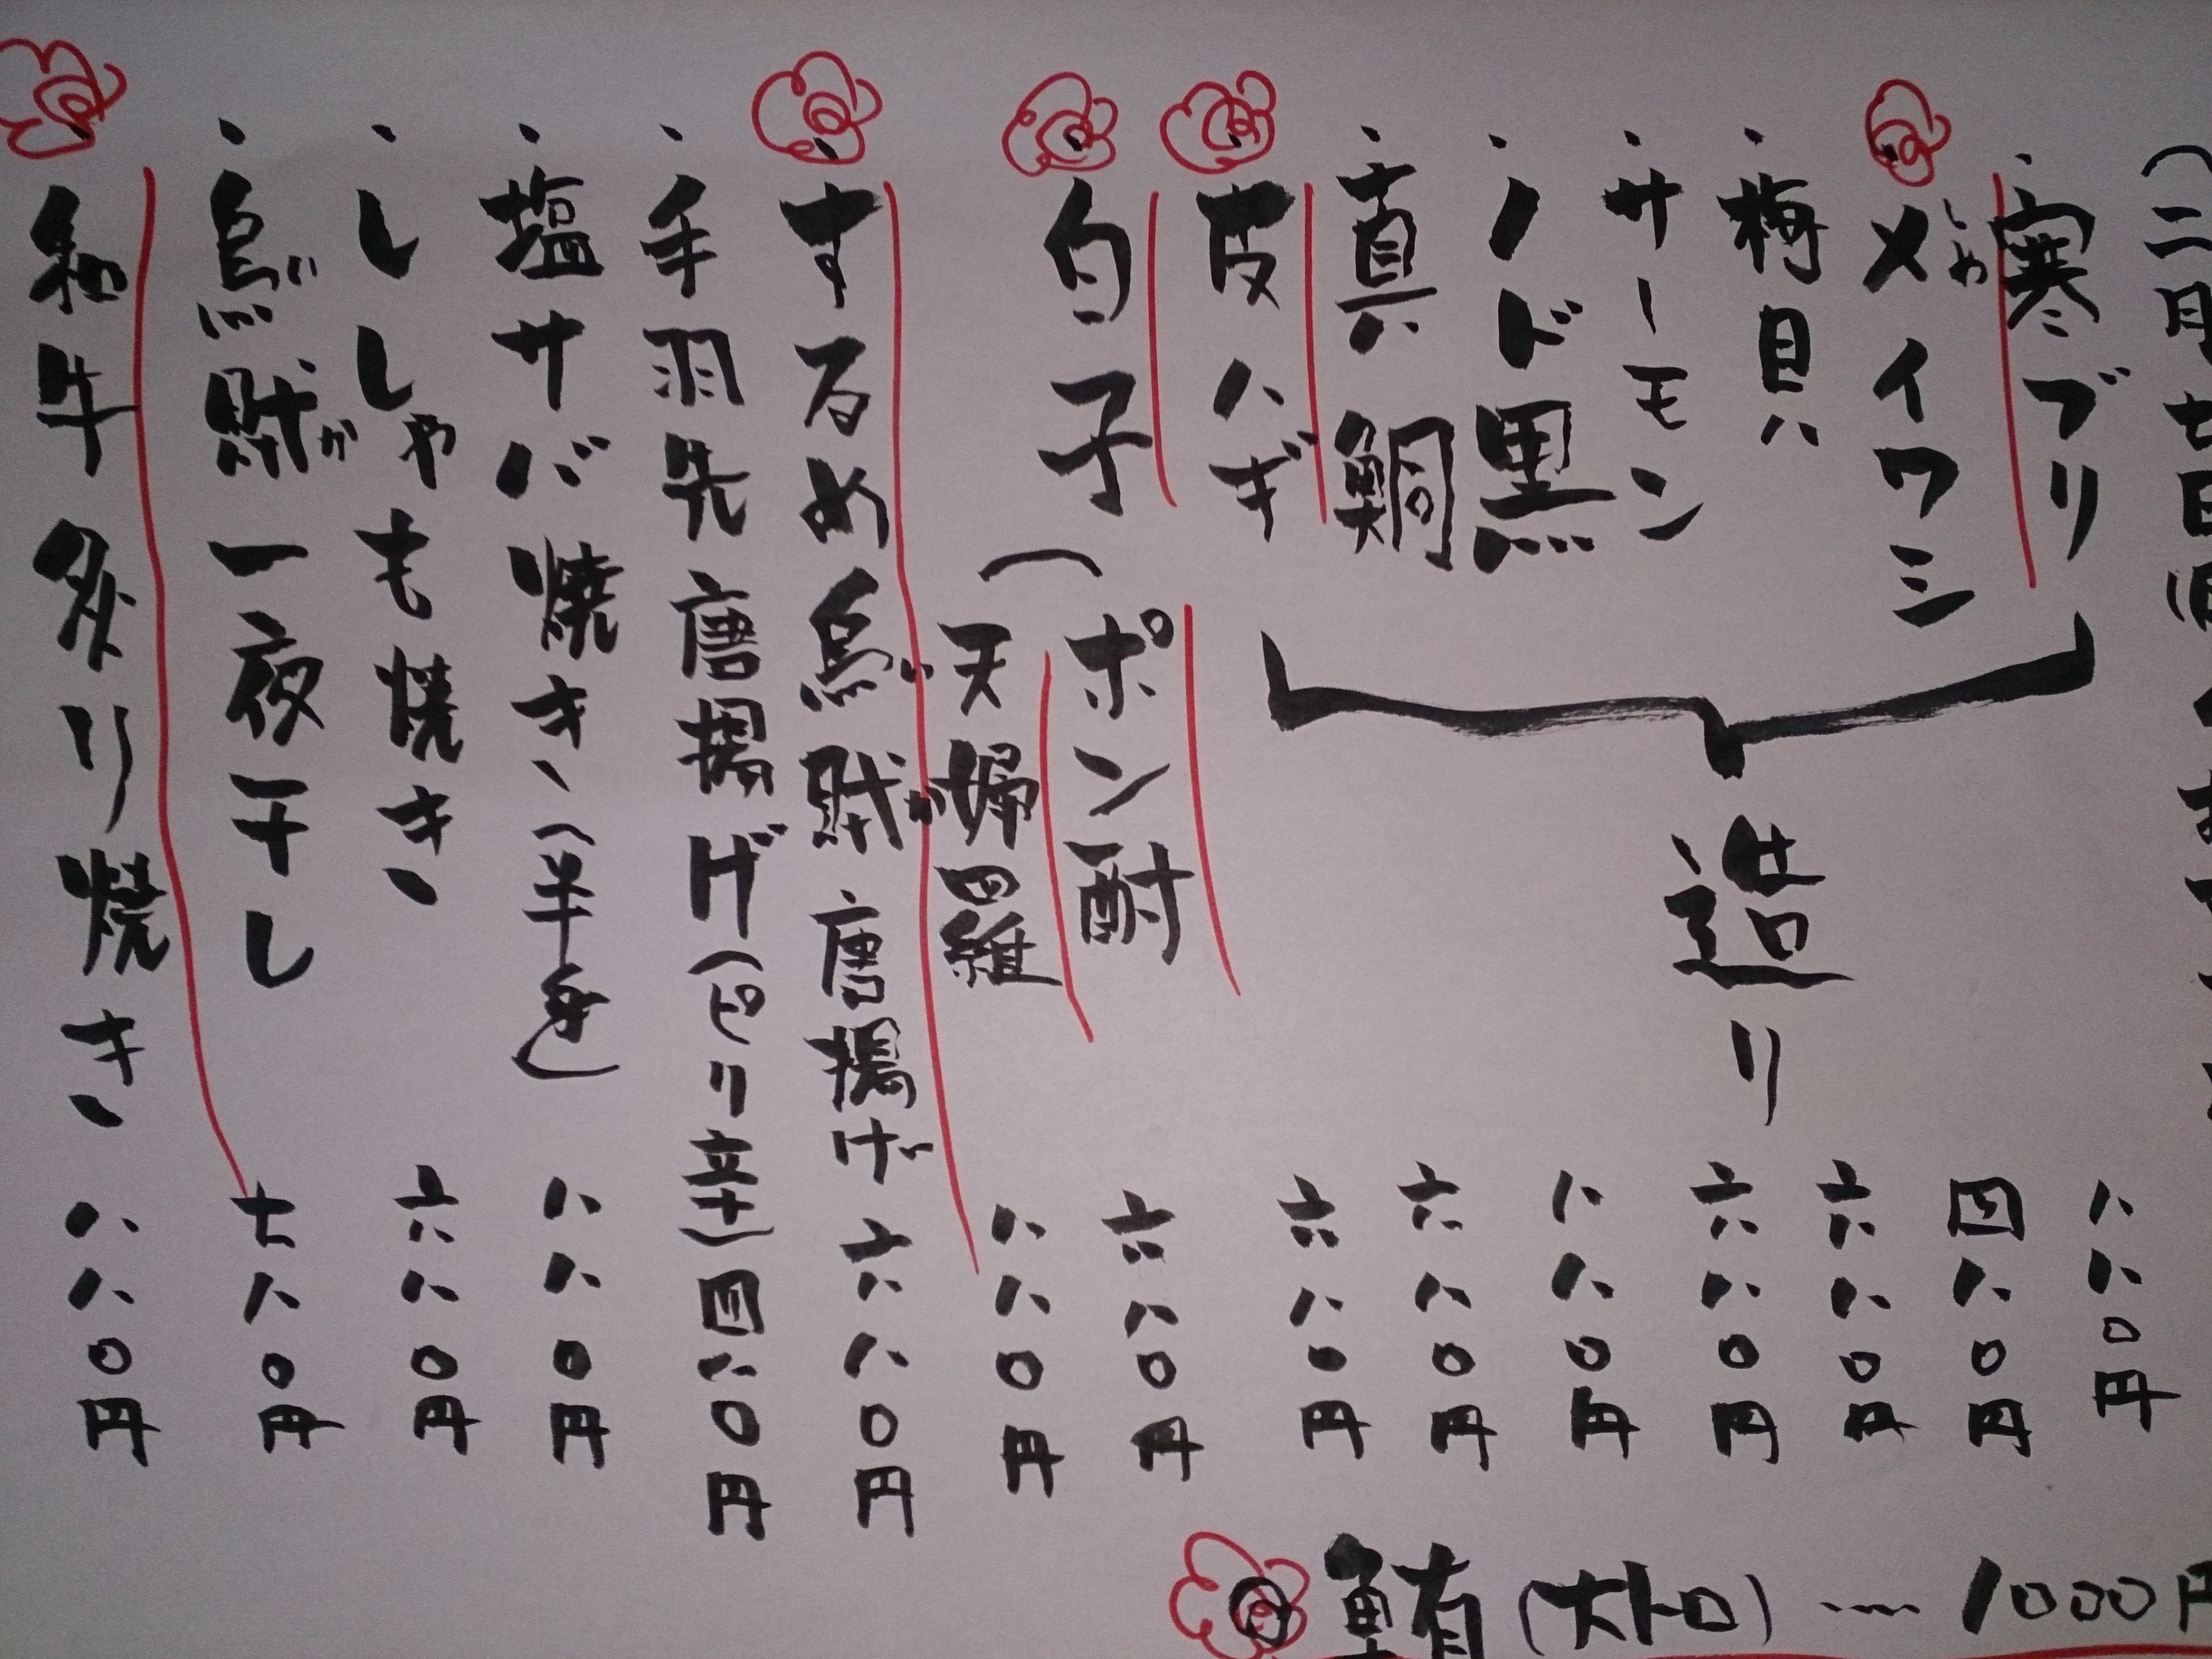 (二月七日
・寒ブリ 八八〇円
・〆イワシ 四八〇円
しめ
・梅貝 六八〇円
・サーモン 六八〇円
・ノド黒 八八〇円
・真鯛 六八〇円
・皮ハギ 六八〇円
造り
・白子(ポン酎 六八〇円
天婦羅 八八〇円
・するめ烏賊唐揚げ 六八〇円
いか
・手羽先唐揚げ(ピリ辛)四八〇円
・塩サバ焼き、(半身) 八八〇円
・ししゃも焼き、 六八〇円
・烏賊一夜干し 七八〇円
いか
・和牛炙り焼き、 八八〇円
鮪(大トロ) ---- 1000円